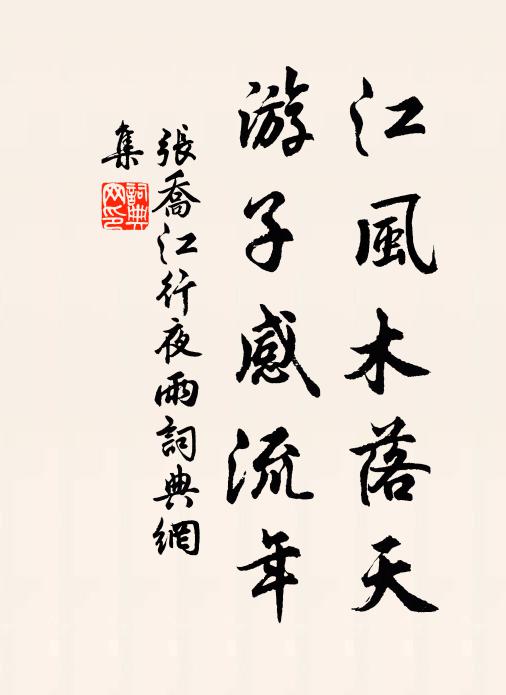 江風木落天
游子感流年
張喬江行夜雨詞典網
集
詞典
网印